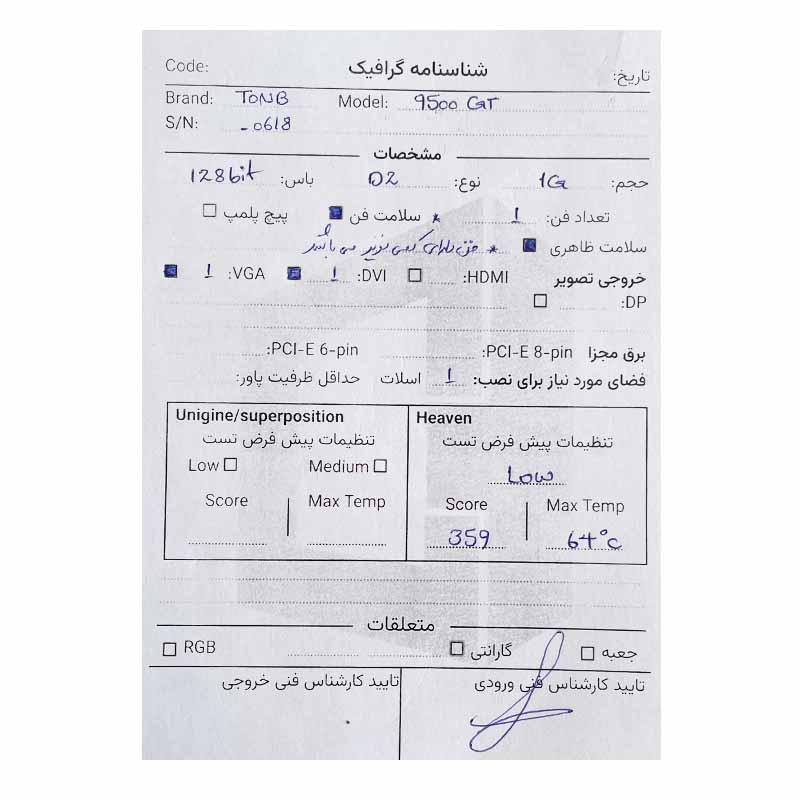 Code: شناسنامه گرافیک تاریخ:
Brand: TONB Model: 9500 GT
S/N: _0618
مشخصات
حجم: 1G نوع: D2 باس: 128bit
تعداد فن: 1 * سلامت فن پیچ پلمپ
سلامت ظاهری * فن دارای کمی نویز می باشد
خروجی تصویر HDMI: DVI: 1 VGA: 1
DP:
برق مجزا PCI-E 8-pin: PCI-E 6-pin:
فضای مورد نیاز برای نصب: 1 اسلات حداقل ظرفیت پاور:
Unigine/superposition
تنظیمات پیش فرض تست
Low Medium
Score Max Temp
Heaven
تنظیمات پیش فرض تست
Low
Score Max Temp
359 64°c
متعلقات
جعبه گارانتی RGB
تایید کارشناس فنی ورودی تایید کارشناس فنی خروجی